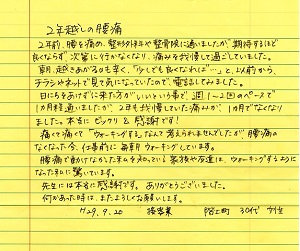 2年越しの腰痛
2年前、腰を痛め、整形外科や整骨院に通いましたが、期待するほど
良くならず、次第に行かなくなり、痛みを我慢して過ごしていました。
朝、起きあがるのも辛く、「少しでも良くなれば…」と、以前から、
チラシやネットで見て気になっていたので、電話してみました。
日にちをあけずに来た方がいいという事で、週1〜2回のペースで
1カ月半通いましたが、2年も我慢していた痛みが、1カ月でなくなり
ました。本当にビックリ&感謝です!
痛くて痛くて「ウォーキングするなんて考えられませんでしたが、腰痛の
なくなった今、仕事前に毎朝ウォーキングしています。
腰痛で動けなかった私を知っている家族や友達は、ウォーキングするように
なった私に驚いています。
先生には本当に感謝です。ありがとうございました。
何かあった時は、またよろしくお願いします。
H29.9.20 接客業 昭和町 30代 女性